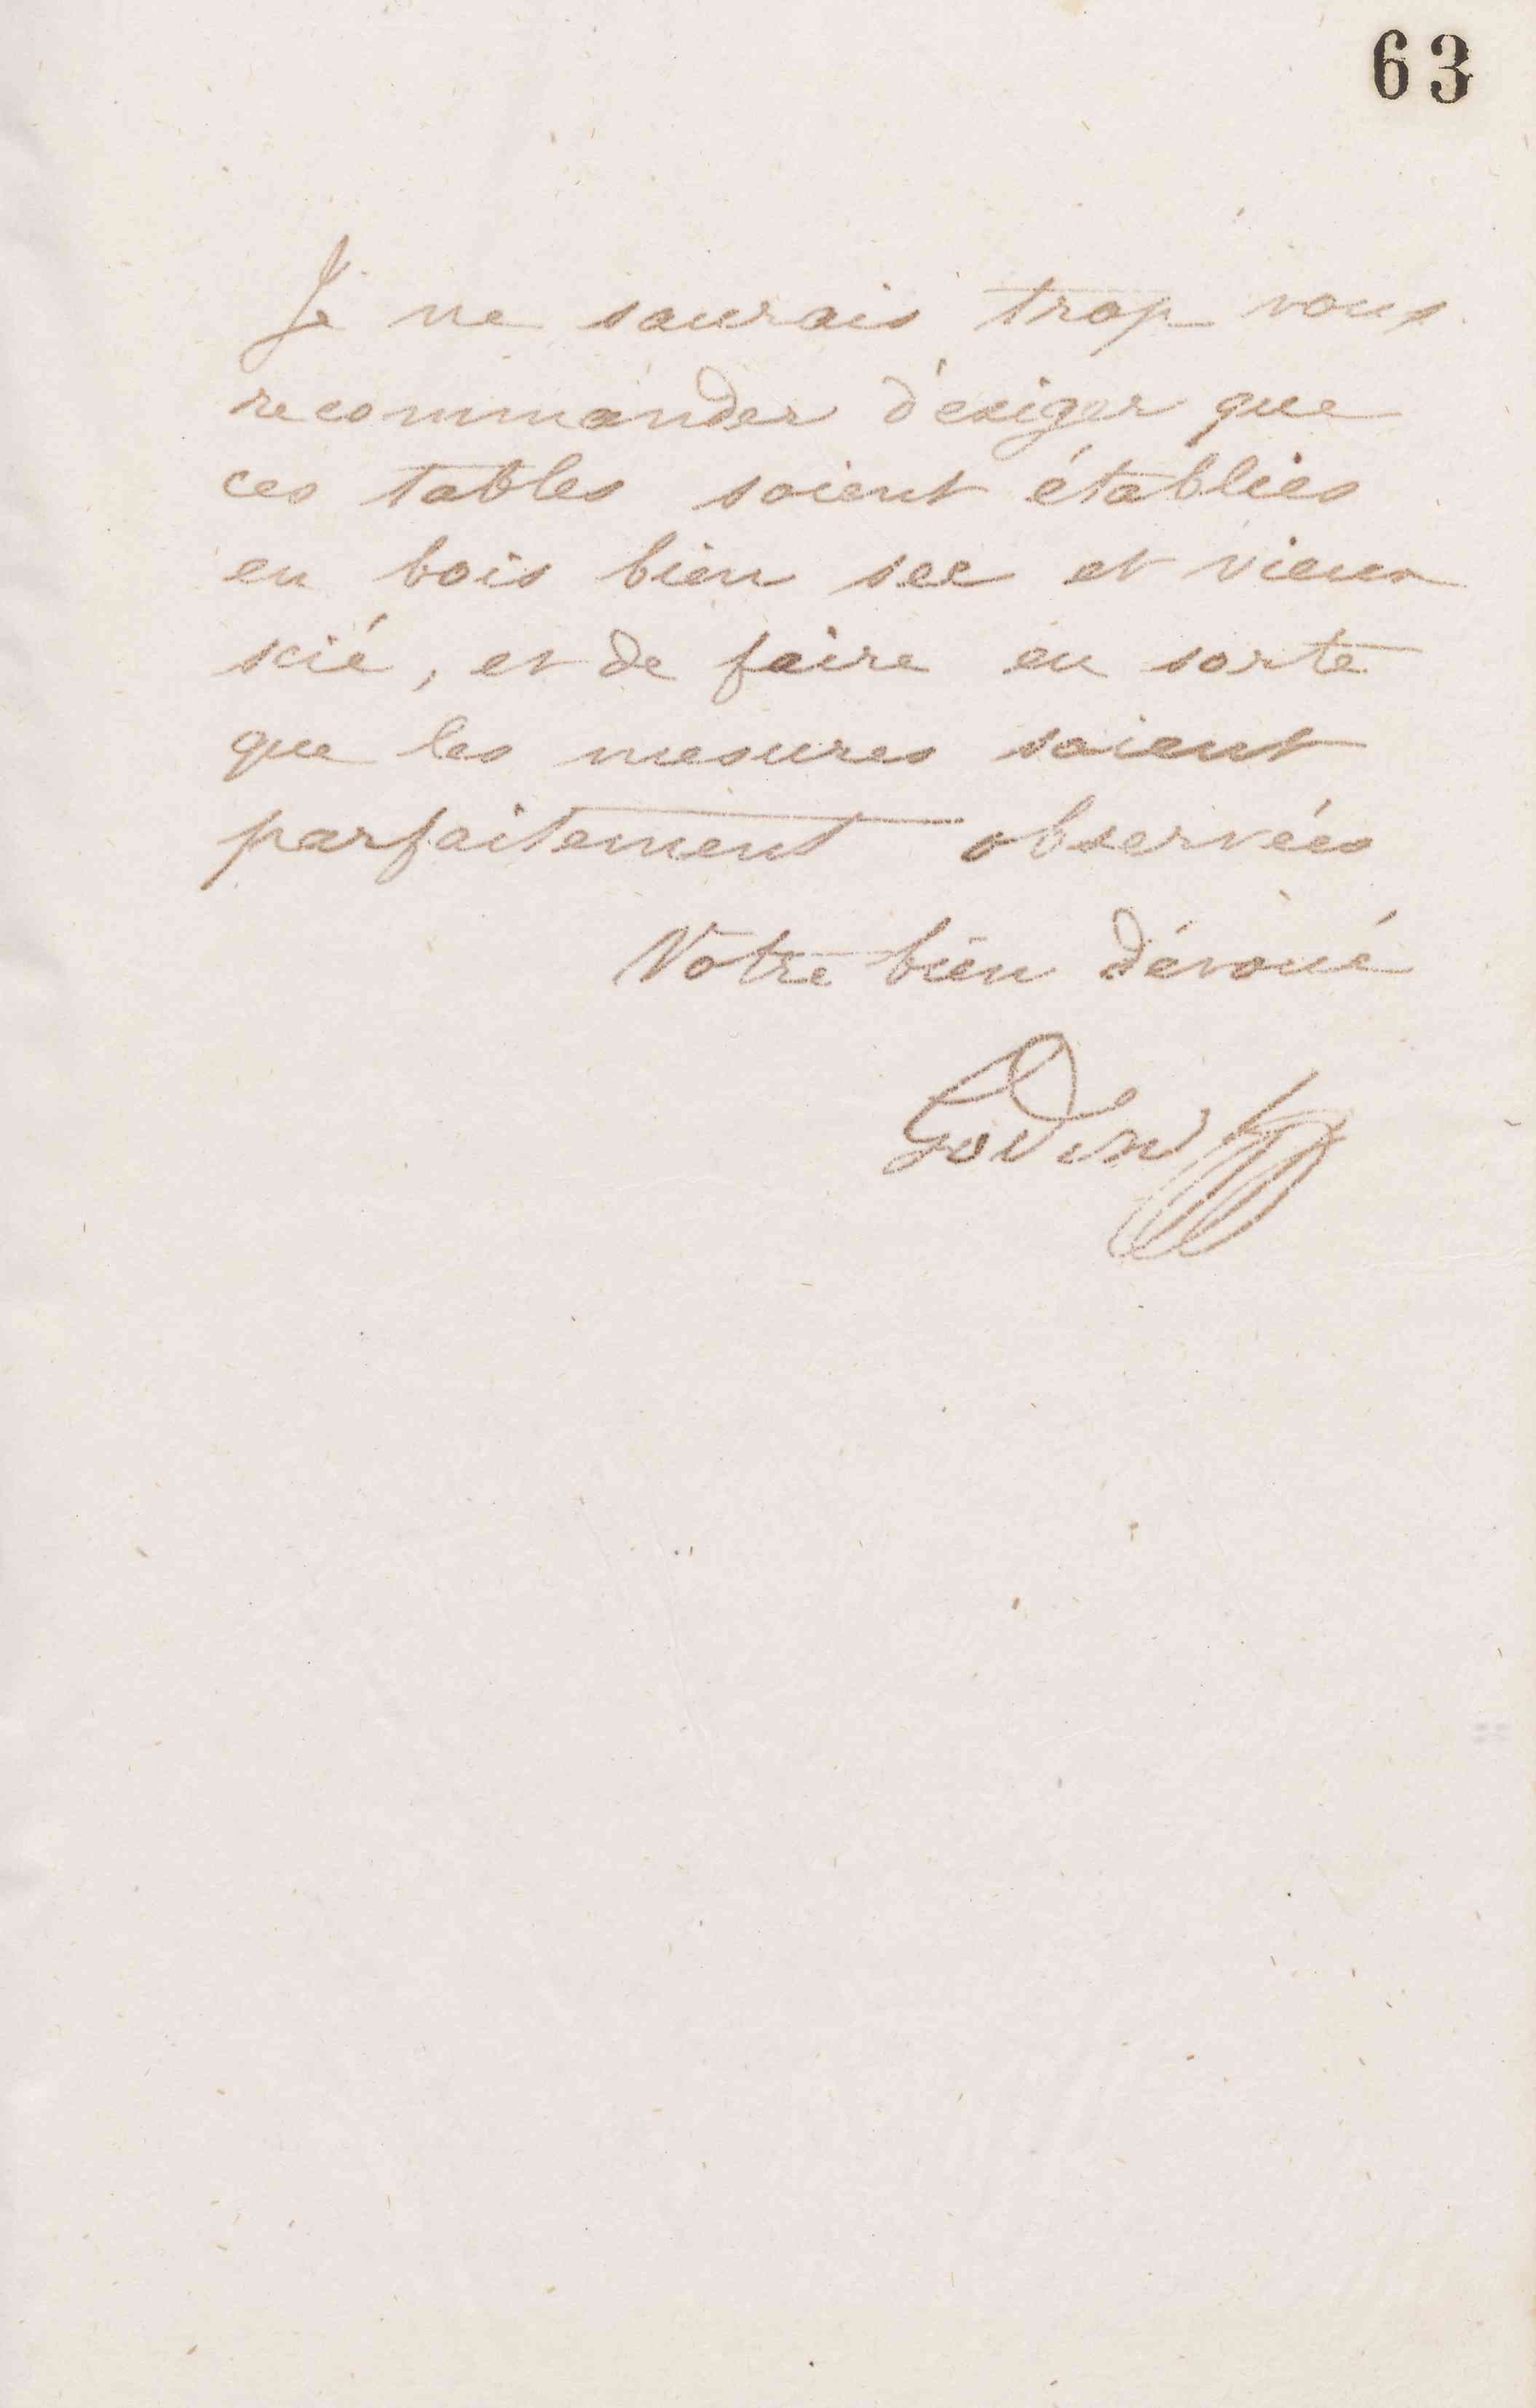 63
Je ne saurais trop vous
recommander d'exiger que
ces tables soient établies
en bois bien sec et vieux
scié, et de faire en sorte
que les mesures soient
parfaitement observées
Votre bien dévoué
Godin